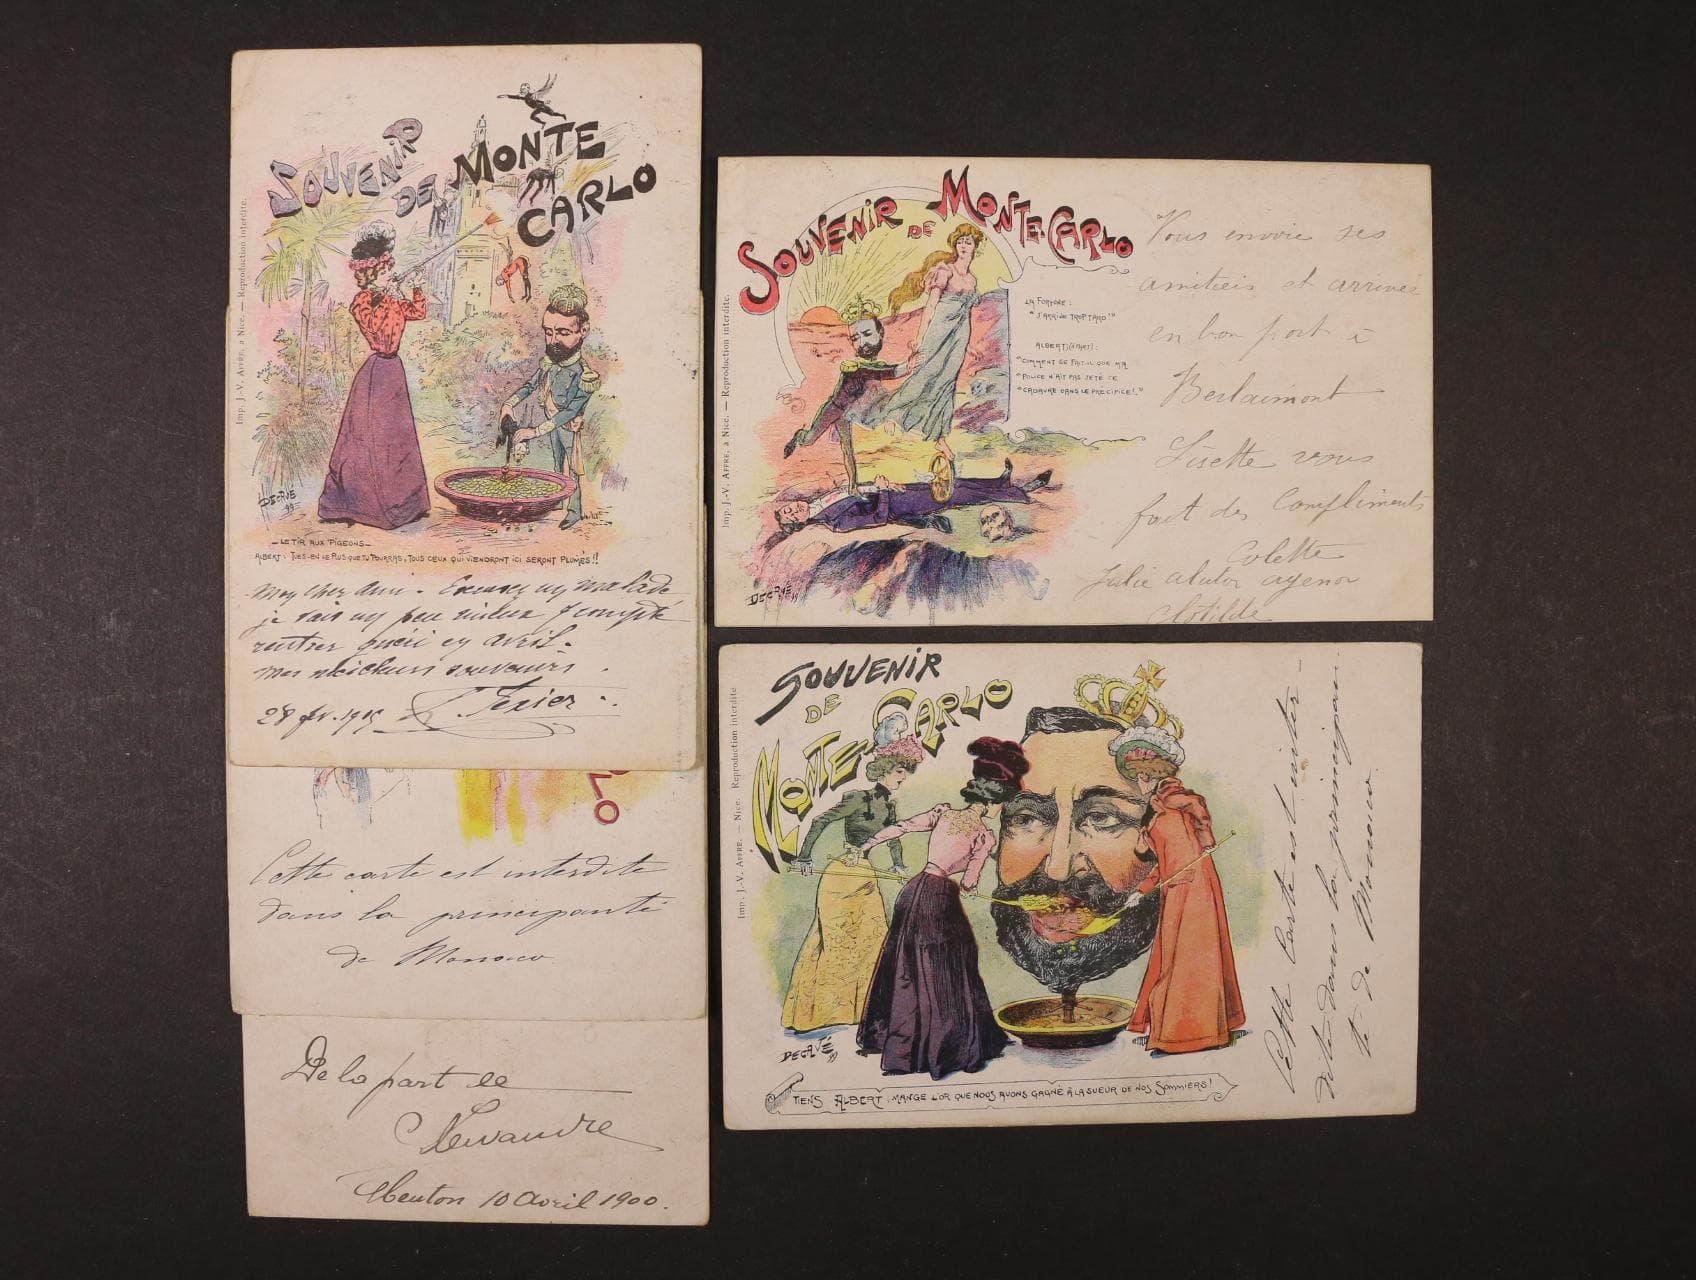 SOUVENIR
DE MONTE
CARLO
Imp. J.-V. AFFRE, a Nice. — Reproduction interdite.
DECAVÉ
99
—LE TIR AUX PIGEONS—
ALBERT: TUES-EN LE PLUS QUE TU POURRAS, TOUS CEUX QUI VIENDRONT ICI SERONT PLUMÉS!!
Mon cher ami. Excusez un malade
je vais un peu mieux & compte
rentrer guéri en avril.
mes meilleurs souvenirs.
28 fv. Texier
LO
Cette carte est interdite
dans la principauté
de Monaco
De la part de
Menton 10 Avril 1900.
SOUVENIR DE MONTE-CARLO
Imp. J.-V. AFFRE, a Nice. — Reproduction interdite.
LA FORTUNE:
"J'ARRIVE TROP TARD!"
ALBERT (A PART):
"COMMENT SE FAIT-IL QUE MA
"POLICE N'AIT PAS JETÉ CE
"CADAVRE DANS LE PRÉCIPICE!.."
DECAVÉ 99
Vous envoie ses
amitiés et arrivés
en bon port à
Berlaimont
Lisette vous
fait des Compliments
Colette
Julie
Clotilde
SOUVENIR
DE
MONTE-CARLO
Imp. J.-V. AFFRE. — Nice. Reproduction interdite
DECAVÉ
99
TIENS ALBERT: MANGE L'OR QUE NOUS AVONS GAGNÉ À LA SUEUR DE NOS SOMMIERS!
Cette Carte est inter-
dite dans la principau-
té de Monaco.